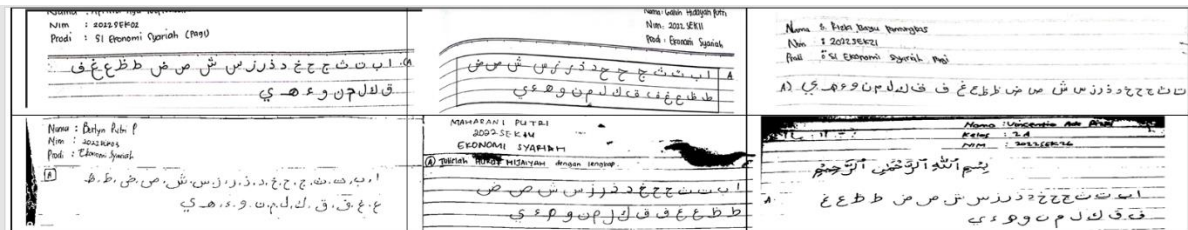 NIM : 2022SEK02
Prodi : S1 Ekonomi Syariah (Pagi)
A. ا ب ت ث ج ح خ د ذ ر ز س ش ص ض ط ظ ع غ ف
ق ك ل م ن و ء ه ي
Nama : Galuh Hidayah Putri
Nim : 2022 SEK11
Prodi : Ekonomi Syariah
A ا ب ت ث ج ح خ د ذ ر ز س ش ص ض
ط ظ ع غ ف ق ك ل م ن و ه ء ي
Nama : Rizki Bagu
Nim : 2022SEK21
Prodi : S1 Ekonomi Syariah Pagi
A) ت ث ج ح خ د ذ ر ز س ش ص ض ط ظ ع غ ف ق ك ل م ن و ء ه ي
Nama : Berlyn Putri P
Nim :
Prodi : Ekonomi Syariah
A
ا، ب، ت، ث، ج، ح، خ، د، ذ، ر، ز، س، ش، ص، ض، ط، ظ
ع، غ، ف، ق، ك، ل، م، ن، و، ء، ه، ي
MAHARANI PUTRI
2022SEK14
EKONOMI SYARIAH
A Tulislah HURUF HIJAIYAH dengan lengkap.
ا ب ت ث ج ح خ د ذ ر ز س ش ص ض
ط ظ ع غ ف ق ك ل م ن و ه ء ي
Nama : Vincentio Ado
Kelas : 2A
NIM : 2022SEK26
بِسْمِ اللّٰهِ الرَّحْمٰنِ الرَّحِيْمِ
A. ا ب ت ث ج ح خ د ذ ر ز س ش ص ض ط ظ ع غ
ف ق ك ل م ن و ه ء ي